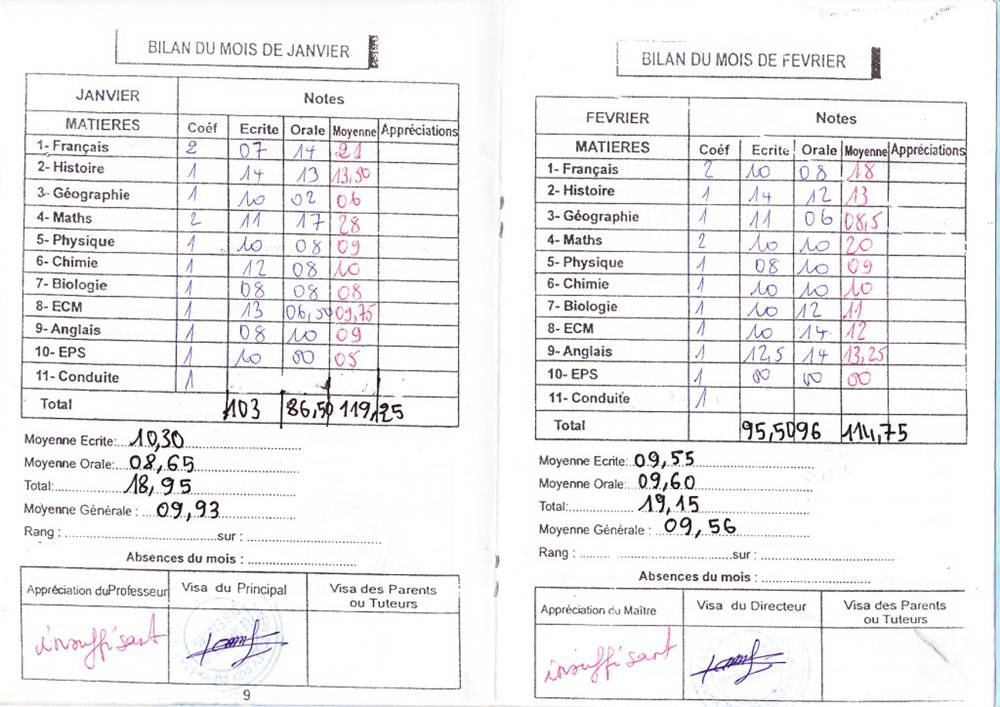 BILAN DU MOIS DE JANVIER
JANVIER Notes
MATIERES Coéf Ecrite Orale Moyenne Appréciations
1- Français 2 07 14 21
2- Histoire 1 14 13 13,50
3- Géographie 1 10 02 06
4- Maths 2 11 17 28
5- Physique 1 10 08 09
6- Chimie 1 12 08 10
7- Biologie 1 08 08 08
8- ECM 1 13 06,50 09,75
9- Anglais 1 08 10 09
10- EPS 1 10 00 05
11- Conduite 1
Total 103 86,50 119,25
Moyenne Ecrite: 10,30
Moyenne Orale: 08,65
Total: 18,95
Moyenne Générale : 09,93
Rang : sur :
Absences du mois :
Appréciation du Professeur Visa du Principal Visa des Parents ou Tuteurs
insuffisant
9
BILAN DU MOIS DE FEVRIER
FEVRIER Notes
MATIERES Coéf Ecrite Orale Moyenne Appréciations
1- Français 2 10 08 18
2- Histoire 1 14 12 13
3- Géographie 1 11 06 08,5
4- Maths 2 10 10 20
5- Physique 1 08 10 09
6- Chimie 1 10 10 10
7- Biologie 1 10 12 11
8- ECM 1 10 14 12
9- Anglais 1 12,5 14 13,25
10- EPS 1 00 00 00
11- Conduite 1
Total 95,50 96 114,75
Moyenne Ecrite: 09,55
Moyenne Orale: 09,60
Total: 19,15
Moyenne Générale : 09,56
Rang : sur :
Absences du mois :
Appréciation du Maître Visa du Directeur Visa des Parents ou Tuteurs
insuffisant